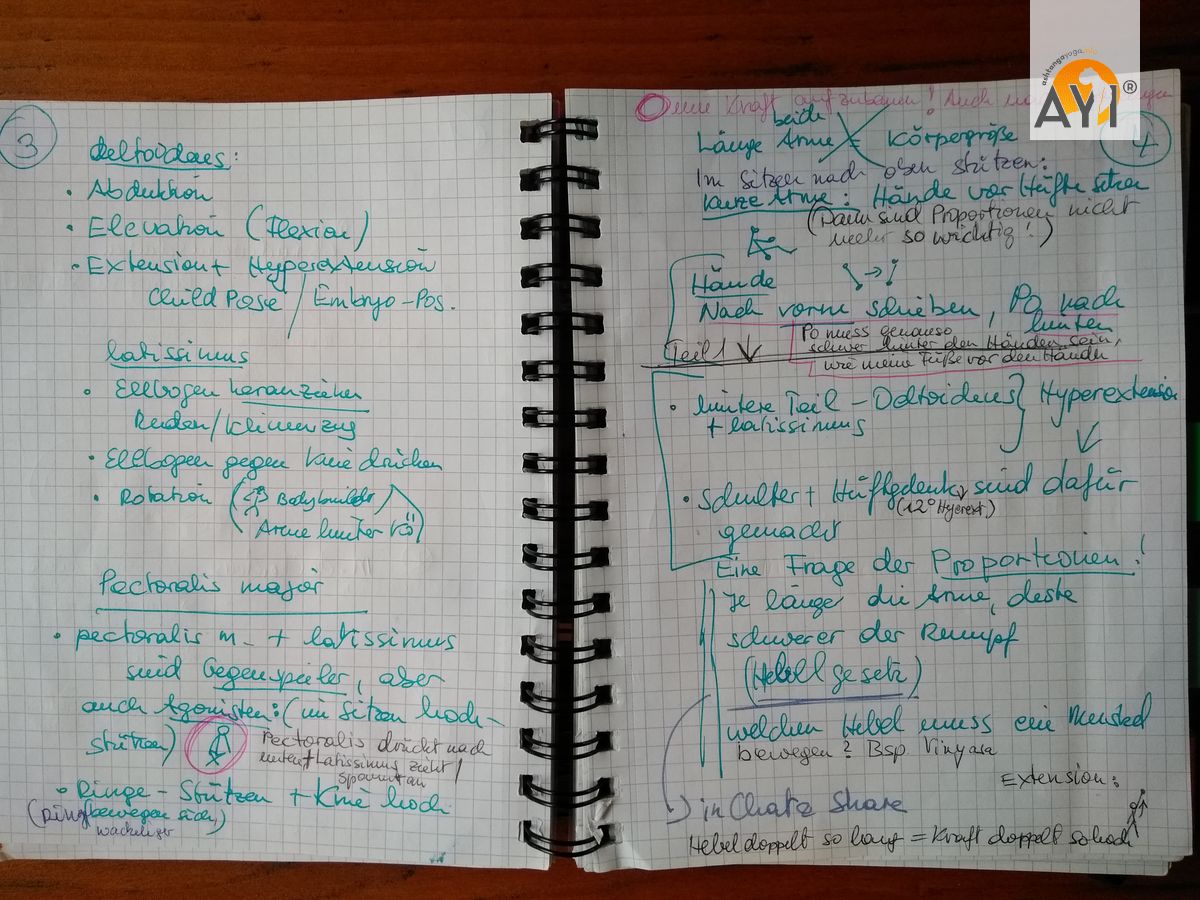 3
deltoideus:
• Abduktion
• Elevation (Flexion)
• Extension + Hyperextension
Child Pose / Embryo-Pos.
latissimus
• Ellbogen heranziehen
Rudern/Klimmzug
• Ellbogen gegen Knie drücken
• Rotation ( Bodybuilder
Arme hinter )
Pectoralis major
• pectoralis m. + latissimus
sind Gegenspieler, aber
auch Agonisten: (im Sitzen hoch-
stützen)
Pectoralis drückt nach
unten + Latissimus zieht/
spannt an
• Ringe - Stützen + Knie hoch
(Ringe bewegen sich,)
wackeliger
ashtangayoga.info
AYI®
eine Kraft aufzubauen! Auch
beide
Länge Arme = Körpergröße
4
Im Sitzen nach oben stützen:
kurze Arme: Hände vor Hüfte setzen
(Dann sind Proportionen nicht
mehr so wichtig!)
Hände
Nach vorne schieben, Po nach
hinten
Po muss genauso
schwer hinter den Händen sein,
wie meine Füße vor den Händen
Teil 1 ↓
• hintere Teil - Deltoideus } Hyperextension
+ latissimus
• Schulter + Hüftgelenk sind dafür
(12° Hyperext.)
gemacht
Eine Frage der Proportionen!
Je länger die Arme, desto
schwerer der Rumpf
(Hebelgesetz)
welchen Hebel muss ein Muskel
bewegen? Bsp Vinyasa
Extension:
→ in Chat Share
Hebel doppelt so lang = Kraft doppelt so hoch